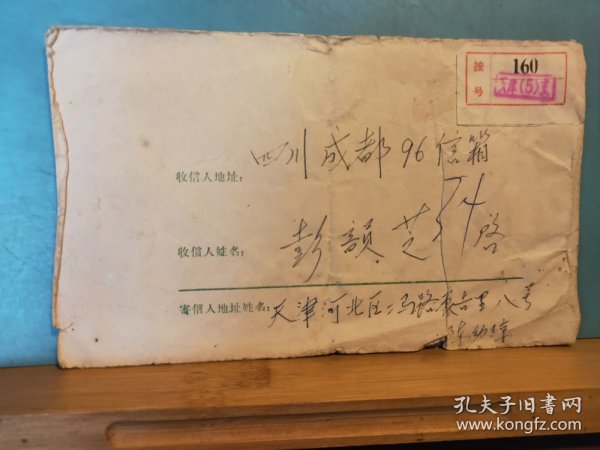 挂号 160
天津(5)支
收信人地址: 四川成都96信箱
收信人姓名: 彭韻芝 启
寄信人地址姓名: 天津河北区二马路東吉里八号
孔夫子旧书网
www.kongfz.com